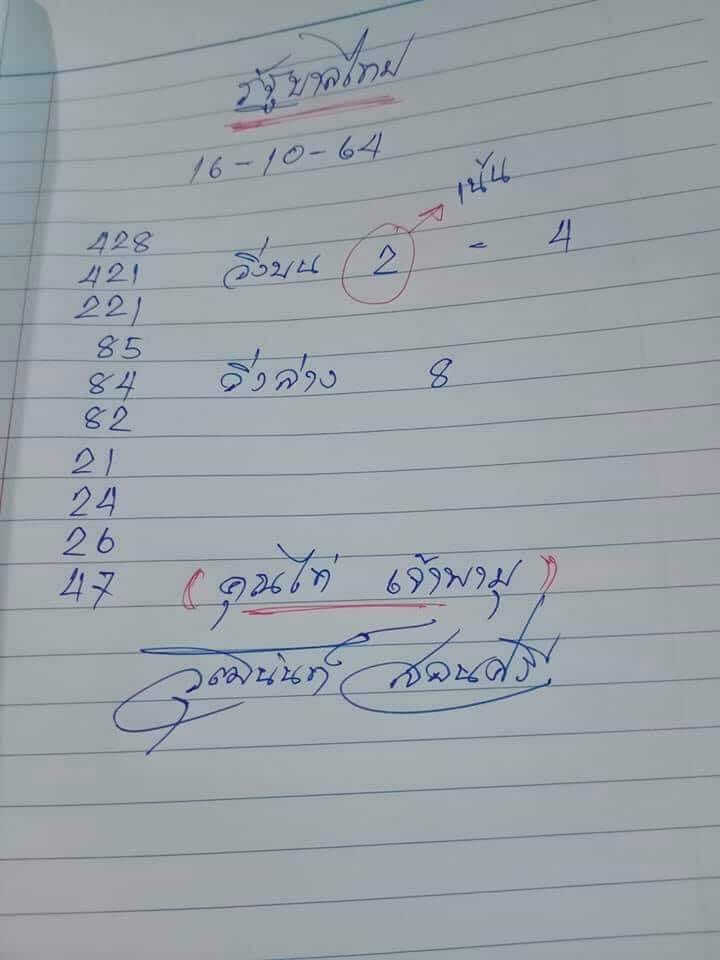 รัฐบาลไทย
16-10-64
เน้น
428
421
วิ่งบน 2 - 4
221
85
84
วิ่งล่าง 8
82
21
24
26
47
(คุณไก่ เจ้าพายุ)
วุฒินันท์ สอนศรี